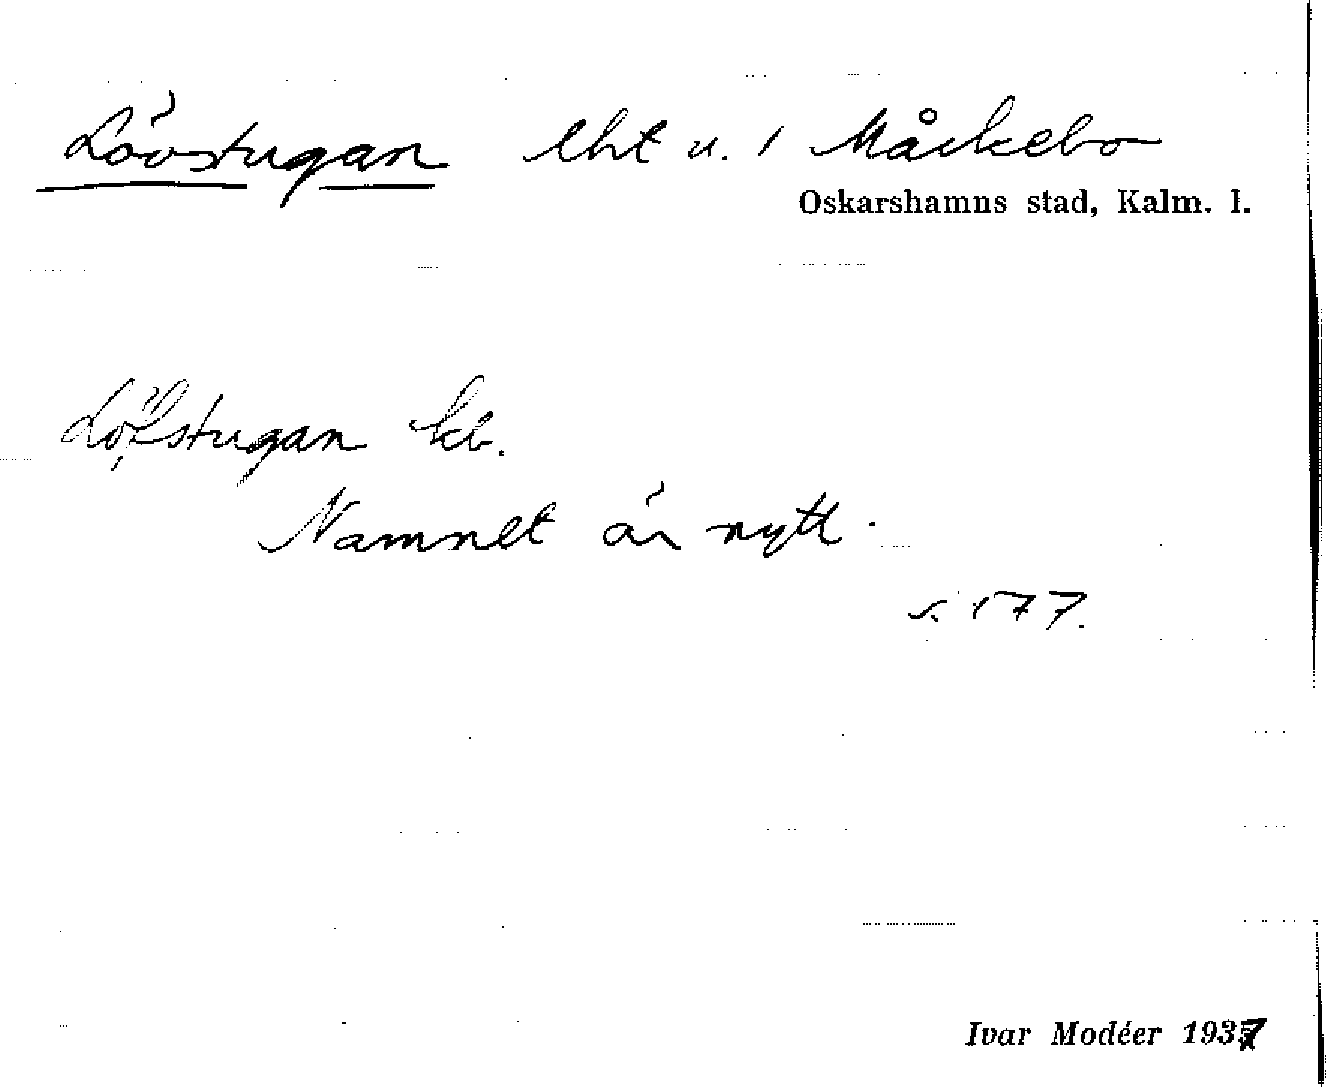 Lövstugan lht u. 1 Måckebo
Oskarshamns stad, Kalm. l.
Löfstugan kb.
Namnet är nytt.
s. 177.
Ivar Modéer 1937